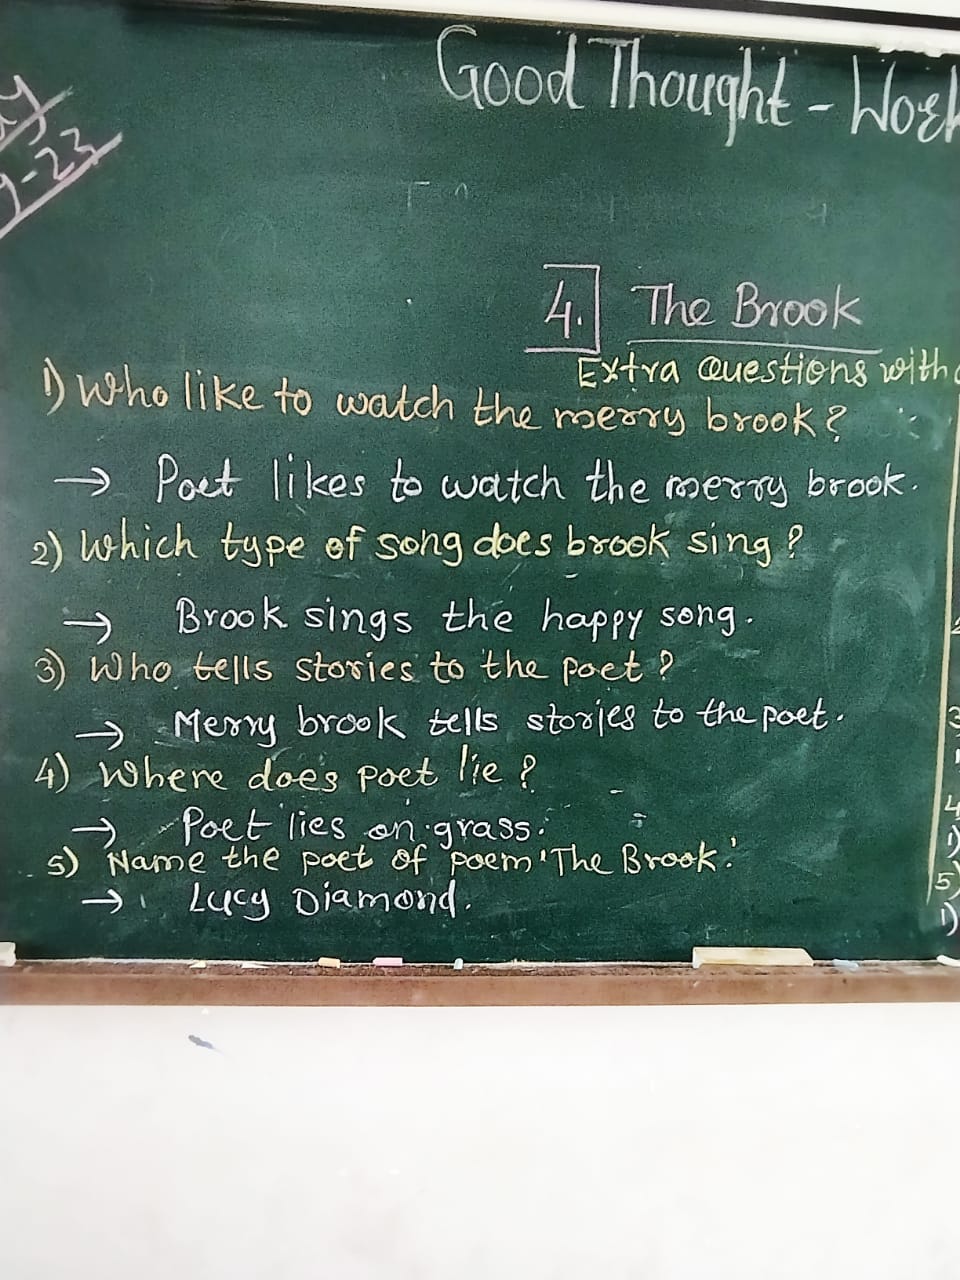 Good Thought - Work
9-23
4. The Brook
Extra Questions with
1) Who like to watch the merry brook?
→ Poet likes to watch the merry brook.
2) Which type of song does brook sing?
→ Brook sings the happy song.
3) Who tells stories to the poet?
→ Merry brook tells stories to the poet.
4) Where does poet lie?
→ Poet lies on grass.
5) Name the poet of poem 'The Brook.'
→ Lucy Diamond.
4
1)
5)
1)